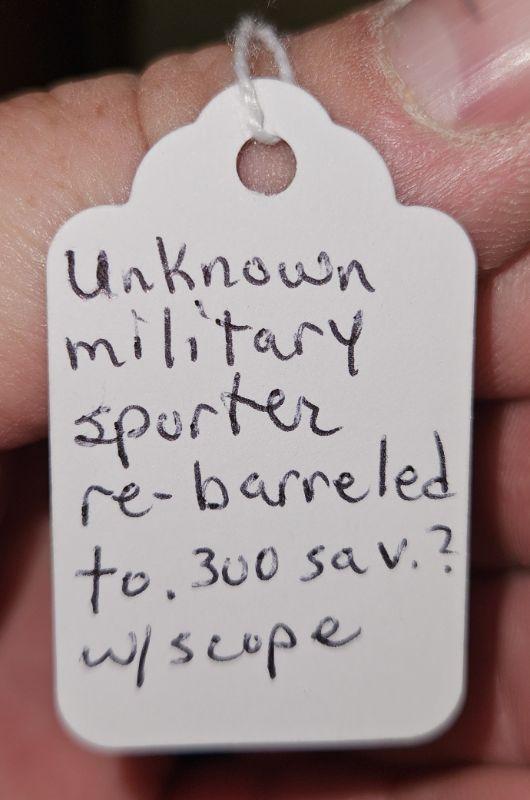 Unknown
military
sporter
re-barreled
to .300 sav.?
w/ scope